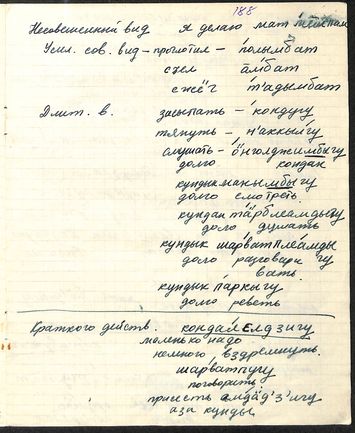 188
Несовешенный вид я делаю мат
Усил. сов. вид – проглотил – по́лымбат
съел а̄мбат
сжёг т'адымбат
Длит. в. засыпать – кондугу
тянуть – н'аккыл̄гу
слушать – ӧ́нголджимбыгу
долго кондан
кундык манымбыгу
долго смотреть.
кундан тӓрблеамдыгу
долго думать
кундык шарватплеамды
долго разговари гу
вать.
кундык паркыгу
долго реветь
Краткого действ. кондайелдзигу
маленько надо
немного вздремнуть.
шарватпугу
поговорить
присесть амдӓд'з'игу
аза кунды